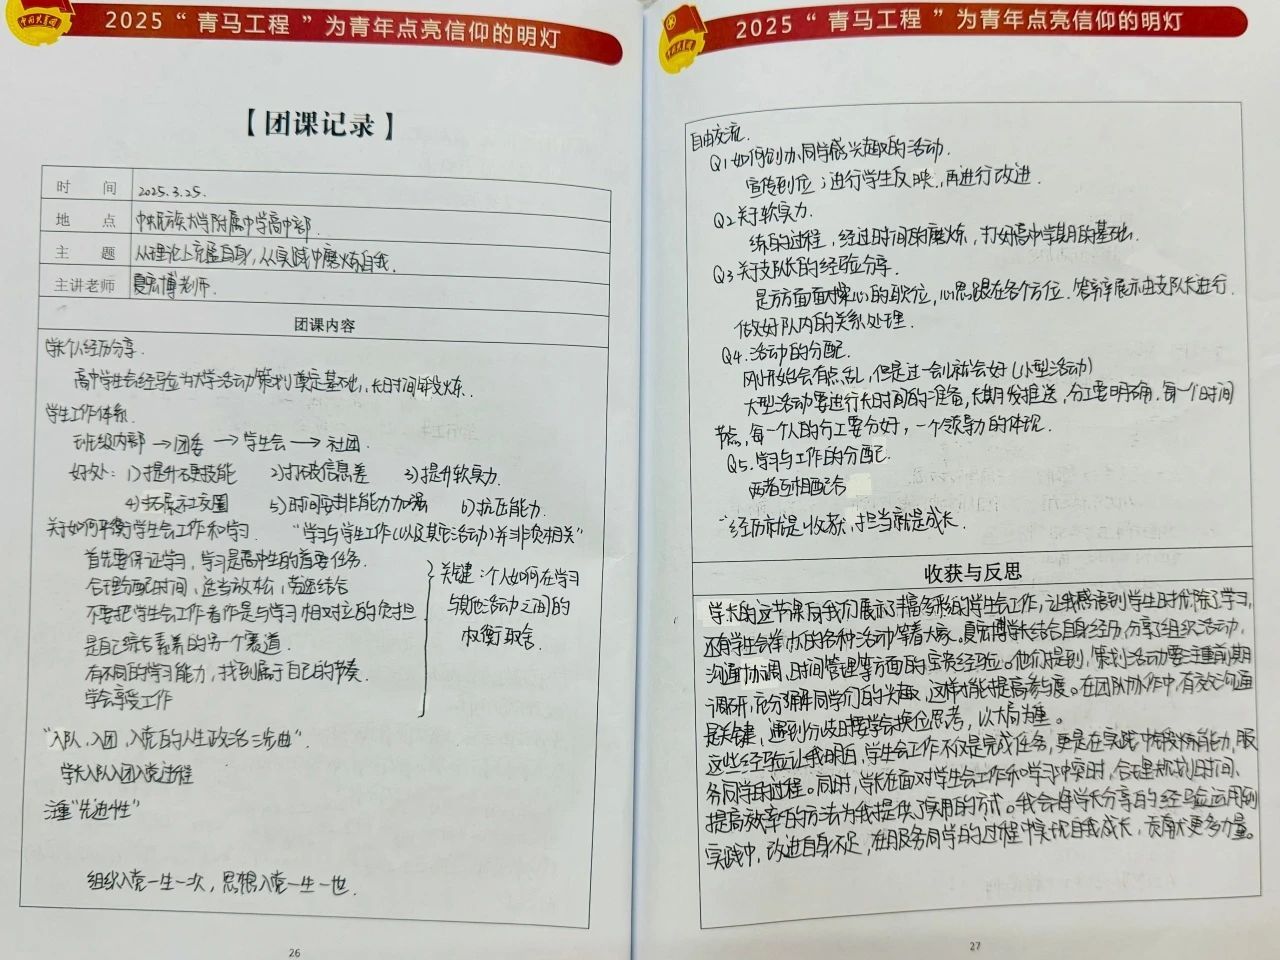 2025 “青马工程” 为青年点亮信仰的明灯
【团课记录】
时 间 2025.3.25.
地 点 中央民族大学附属中学高中部.
主 题 从理论上充盈自身，从实践中磨炼自我.
主讲老师 夏宏博老师.
团课内容
学长个人经历分享.
高中学生会经验为大学活动策划奠定基础，长时间锻炼.
学生工作体系.
班级内部→团委→学生会→社团.
好处：1)提升硬技能 2)打破信息差 3)提升软实力.
4)拓展社交圈 5)时间安排能力加强 6)抗压能力.
关于如何平衡学生会工作和学习. “学习与学生工作(以及其它活动)并非负相关”
首先要保证学习，学习是高中生的首要任务.
合理分配时间，适当放松，劳逸结合
不要把学生会工作看作是与学习相对立的负担
是自己综合素养的另一个赛道.
有不同的学习能力，找到属于自己的节奏.
学会享受工作
关键：个人如何在学习
与其他活动之间的
权衡取舍.
“入队，入团，入党的人生政治三部曲”.
学长入队入团入党过程
注重“先进性”
组织入党一生一次，思想入党一生一世.
26
2025 “青马工程” 为青年点亮信仰的明灯
自由交流.
Q1 如何创办同学感兴趣的活动.
宣传到位；进行学生反映，再进行改进.
Q2 关于软实力.
练的过程，经过时间的磨炼，打好高中学期的基础.
Q3 关于支队长的经验分享.
是方方面面操心的职位，心思跟在各个方位.答辩展示由支队长进行.
做好队内的关系处理.
Q4.活动的分配.
刚开始会有点乱，但是过一会儿就会好(小型活动)
大型活动要进行长时间的准备，长期发推送，分工要明确.每一个时间
节点，每一个人的分工要分好，一个领导力的体现.
Q5.学习与工作的分配.
两者互相配合
“经历就是收获，担当就是成长.
收获与反思
学长的这节课向我们展示了丰富多彩的学生会工作，让我感悟到学生时代除了学习，
还有学生会举办的各种活动等着大家。夏宏博学长结合自身经历，分享了组织活动，
沟通协调，时间管理等方面的宝贵经验。他们提到，策划活动要注重前期
调研，充分了解同学们的兴趣，这样才能提高参与度。在团队协作中，有效沟通
是关键，遇到分歧时要学会换位思考，以大局为重。
这些经验让我明白，学生会工作不仅是完成任务，更是在实践中锻炼能力，服
务同学的过程。同时，学长在面对学生会工作和学习冲突时，合理规划时间、
提高效率的方法为我提供了实用的方式。我会将学长分享的经验运用到
实践中，改进自身不足，在服务同学的过程中实现自我成长，贡献更多力量。
27